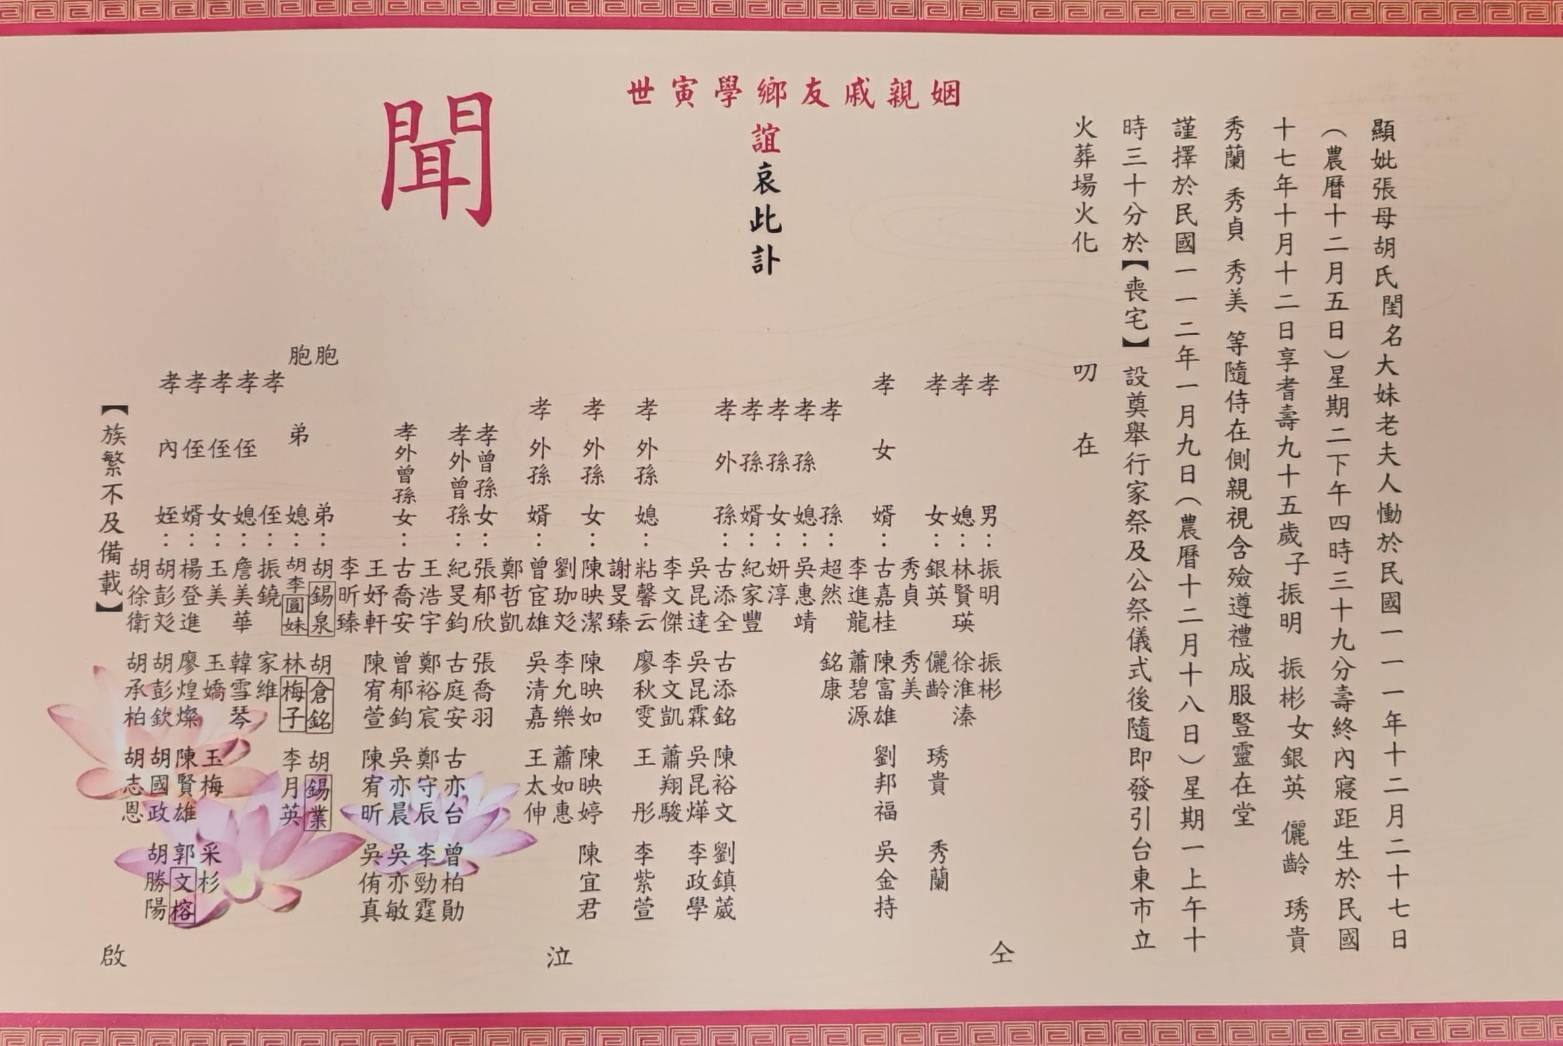 顯妣張母胡氏閨名大妹老夫人慟於民國一一一年十二月二十七日
（農曆十二月五日）星期二下午四時三十九分壽終內寢距生於民國
十七年十月十二日享耆壽九十五歲子振明 振彬女銀英 儷齡 琇貴
秀蘭 秀貞 秀美 等隨侍在側親視含殮遵禮成服豎靈在堂
謹擇於民國一一二年一月九日（農曆十二月十八日）星期一上午十
時三十分於【喪宅】設奠舉行家祭及公祭儀式後隨即發引台東市立
火葬場火化
叨在
姻親戚友鄉學寅世
誼哀此訃
聞
孝男：振明 振彬
孝媳：林賢瑛 徐淮溱
孝女：銀英 儷齡 琇貴 秀蘭
秀貞 秀美
孝女婿：古嘉桂 陳富雄 劉邦福 吳金持
李進龍 蕭碧源
孝孫：超然 銘康
孝孫媳：吳惠靖
孝孫女：妍淳
孝孫婿：紀家豐
孝外孫：古添全 古添銘 陳裕文 劉鎮葳
吳昆達 吳昆霖 吳昆燁 李政學
李文傑 李文凱 蕭翔駿
孝外孫媳：粘馨云 廖秋雯 王彤 李紫萱
謝旻臻
孝外孫女：陳映潔 陳映如 陳映婷 陳宜君
劉珈彣 李允樂 蕭如惠
孝外孫婿：曾宦雄 吳清嘉 王太伸
鄭哲凱
孝曾孫女：張郁欣 張喬羽
孝外曾孫：紀旻鈞 古庭安 古亦台 曾柏勛
王浩宇 鄭裕宸 鄭守辰 李勁霆
孝外曾孫女：古喬安 曾郁鈞 吳亦晨 吳亦敏
王妤軒 陳宥萱 陳宥昕 吳侑真
李昕臻
胞弟：胡錫泉 胡倉銘 胡錫業
胞弟媳：胡李圓妹 林梅子 李月英
孝侄：振鐃 家維
孝侄媳：詹美華 韓雪琴
孝侄女：玉美 玉嬌 玉梅 采杉
孝侄婿：楊登進 廖煌燦 陳賢雄 郭文榕
孝內姪：胡彭彣 胡彭欽 胡國政 胡勝陽
胡徐衛 胡承柏 胡志恩
【族繁不及備載】
仝 泣 啟